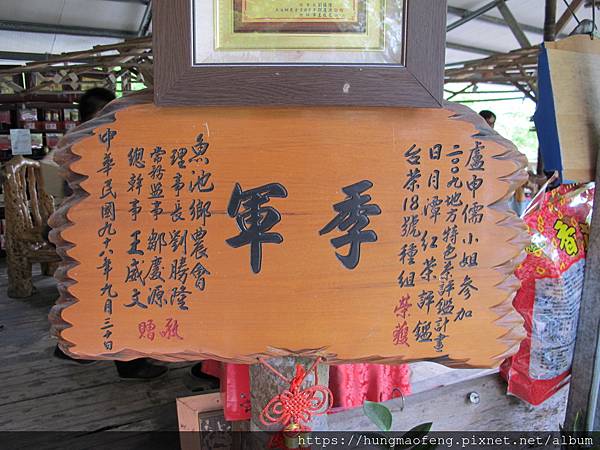 盧申儒小姐參加
二00九地方特色茶評鑑計畫
日月潭紅茶評鑑
台茶18號種組 榮獲
季軍
魚池鄉農會
理事長 劉勝隆
常務監事 鄒慶源
總幹事 王威文
敬贈
中華民國九十八年九月三十日
香
https://hungmaofeng.pixnet.net/album